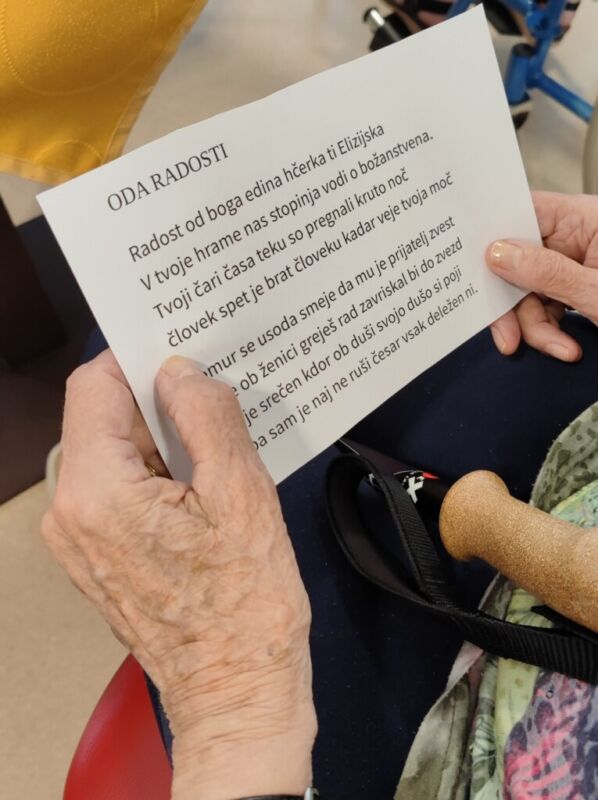 ODA RADOSTI
Radost od boga edina hčerka ti Elizijska
V tvoje hrame nas stopinja vodi o božanstvena.
Tvoji čari časa teku so pregnali kruto noč
človek spet je brat človeku kadar veje tvoja moč
mur se usoda smeje da mu je prijatelj zvest
ob ženici greješ rad zavriskal bi do zvezd
je srečen kdor ob duši svojo dušo si poji
sam je naj ne ruši česar vsak deležen ni.